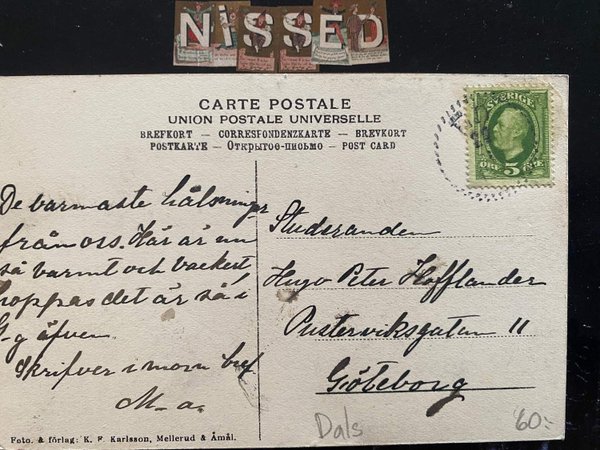 NiSSED
CARTE POSTALE
UNION POSTALE UNIVERSELLE
BREFKORT — CORRESPONDENZKARTE — BREVKORT
POSTKARTE — Открытое-письмо — POST CARD
SVERIGE
5
De varmaste hälsningar
från oss. Här är nu
så varmt och vackert,
hoppas det är så i
G-g äfven.
Skrifver i morn bref
M-a.
Studeranden
Hugo Peter Hofflander
Pusterviksgatan 11
Göteborg
Foto. & förlag: K. F. Karlsson, Mellerud & Åmål.
Dals
60:-